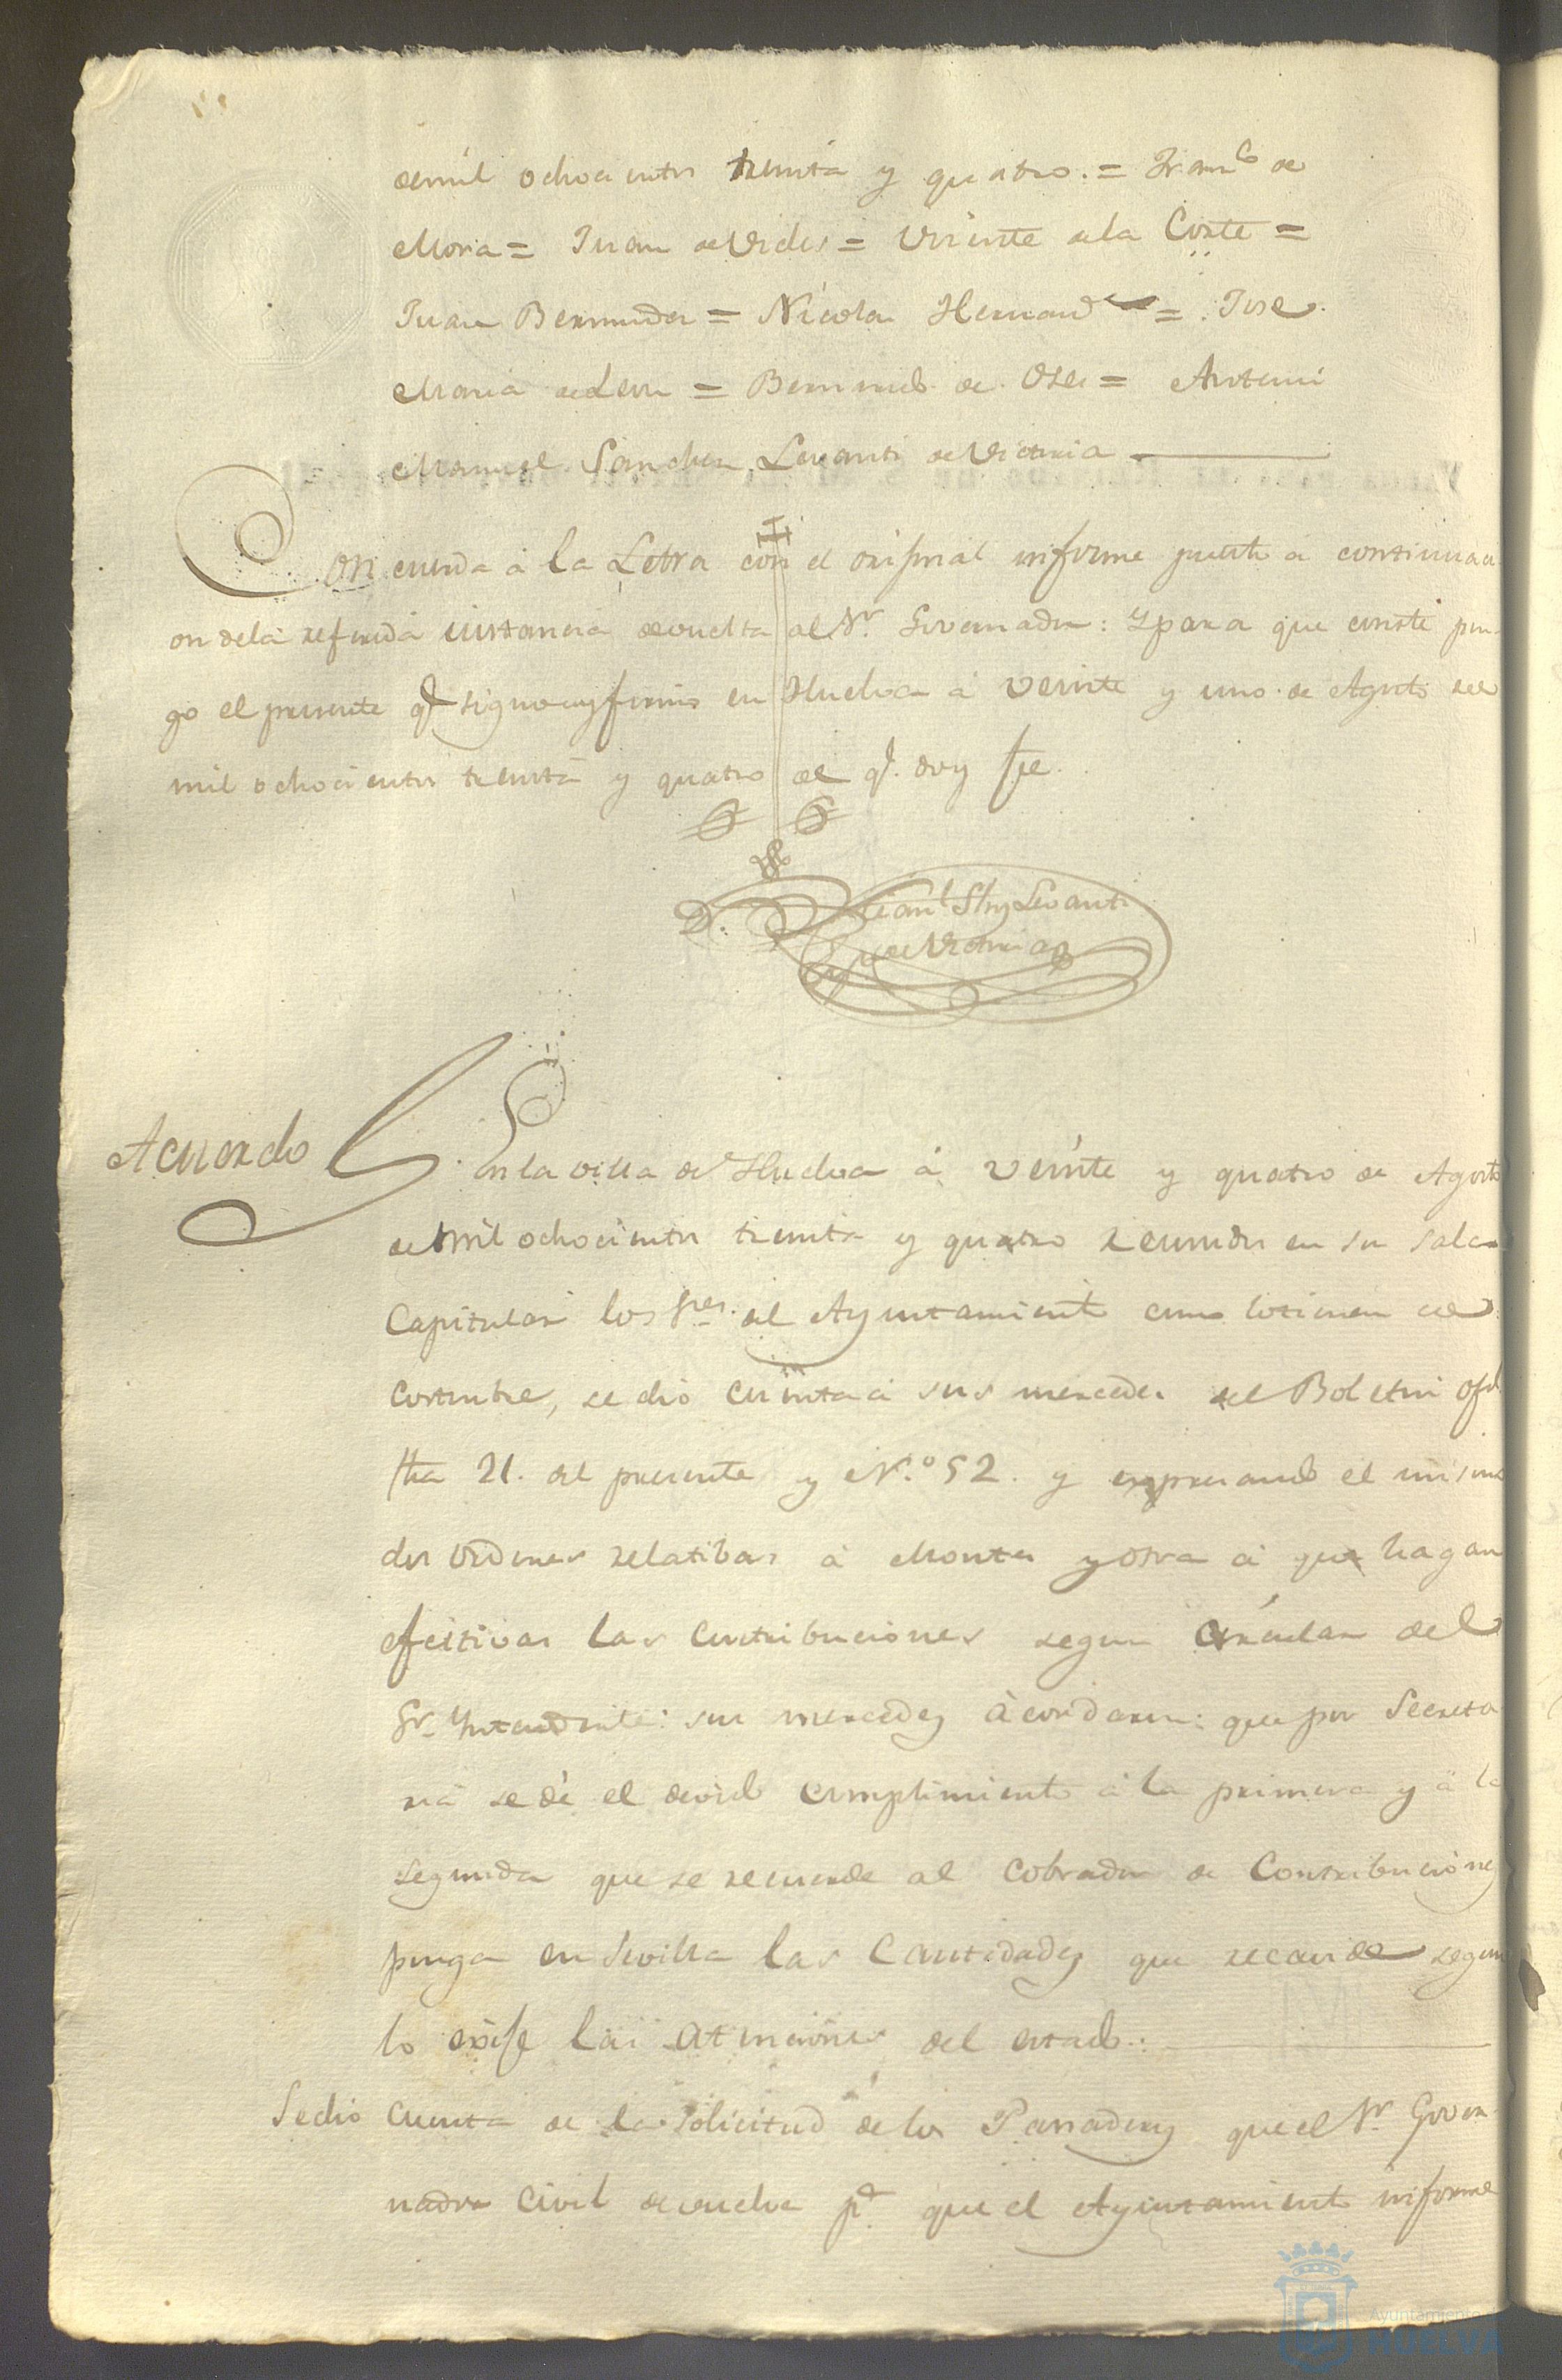 de mil ochocientos treinta y quatro. = Fran.co de
Mora = Juan de Vides = Vicente de la Corte =
Juan Bermudez = Nicolas Hernandez = Jose
Maria de Leon = Bernardo de Oses = Antonio
Manuel Sanchez Levanti de Victoria
Concuerda á la Letra con el original informe puesto á continuaci
on de la referida instancia devuelta al Sr. Governador: Y para que conste pon
go el presente q.e signo y firmo en Huelva á veinte y uno de Agosto de
mil ochocientos treinta y quatro de q.e doy fee.
Man.l Shz Levanti
de Victoria
Acuerdo
En la villa de Huelva á veinte y quatro de Agosto
de mil ochocientos treinta y quatro reunidos en su sala
Capitular los Sres. del Ayuntamiento como lo tienen de
costumbre, se dió cuenta á sus mercedes del Boletin ofl.
fha 21. del presente y N.o 52. y expresando el mismo
dos ordenes relatibas á Montes y otra á que hagan
efectivas las contribuciones segun circular del
Sr. Yntendente: sus mercedes Acordaron: que por Secreta
ria se dé el devido cumplimiento á la primera y á la
segunda que se recuerde al Cobrador de Contribuciones
ponga en Sevilla las Cantidades que recaude segun
lo exije las atenciones del estado:
Se dió cuenta de la solicitud de los Panaderos que el Sr. Gover
nador Civil devuelve p.a que el Ayuntamiento informe
Ayuntamiento
HUELVA